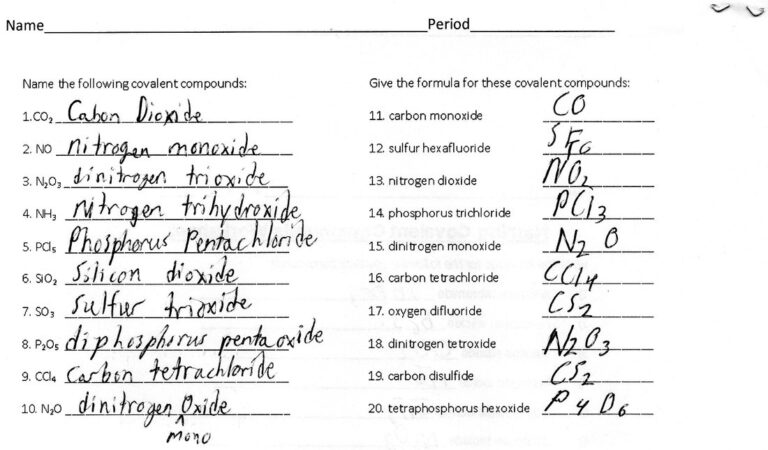 Name Period
Name the following covalent compounds:
1.CO₂ Cabon Dioxide
2. NO nitrogen monoxide
3. N₂O₃ dinitrogen trioxide
4. NH₃ nitrogen trihydroxide
5. PCl₅ Phosphorus Pentachloride
6. SiO₂ Silicon dioxide
7. SO₃ Sulfur trioxide
8. P₂O₅ diphosphorus pentaoxide
9. CCl₄ Carbon tetrachloride
10. N₂O dinitrogen Oxide
^
mono
Give the formula for these covalent compounds:
11. carbon monoxide CO
12. sulfur hexafluoride SF6
13. nitrogen dioxide NO₂
14. phosphorus trichloride PCl3
15. dinitrogen monoxide N₂O
16. carbon tetrachloride CCl4
17. oxygen difluoride CS₂
18. dinitrogen tetroxide N2O3
19. carbon disulfide CS₂
20. tetraphosphorus hexoxide P4O6